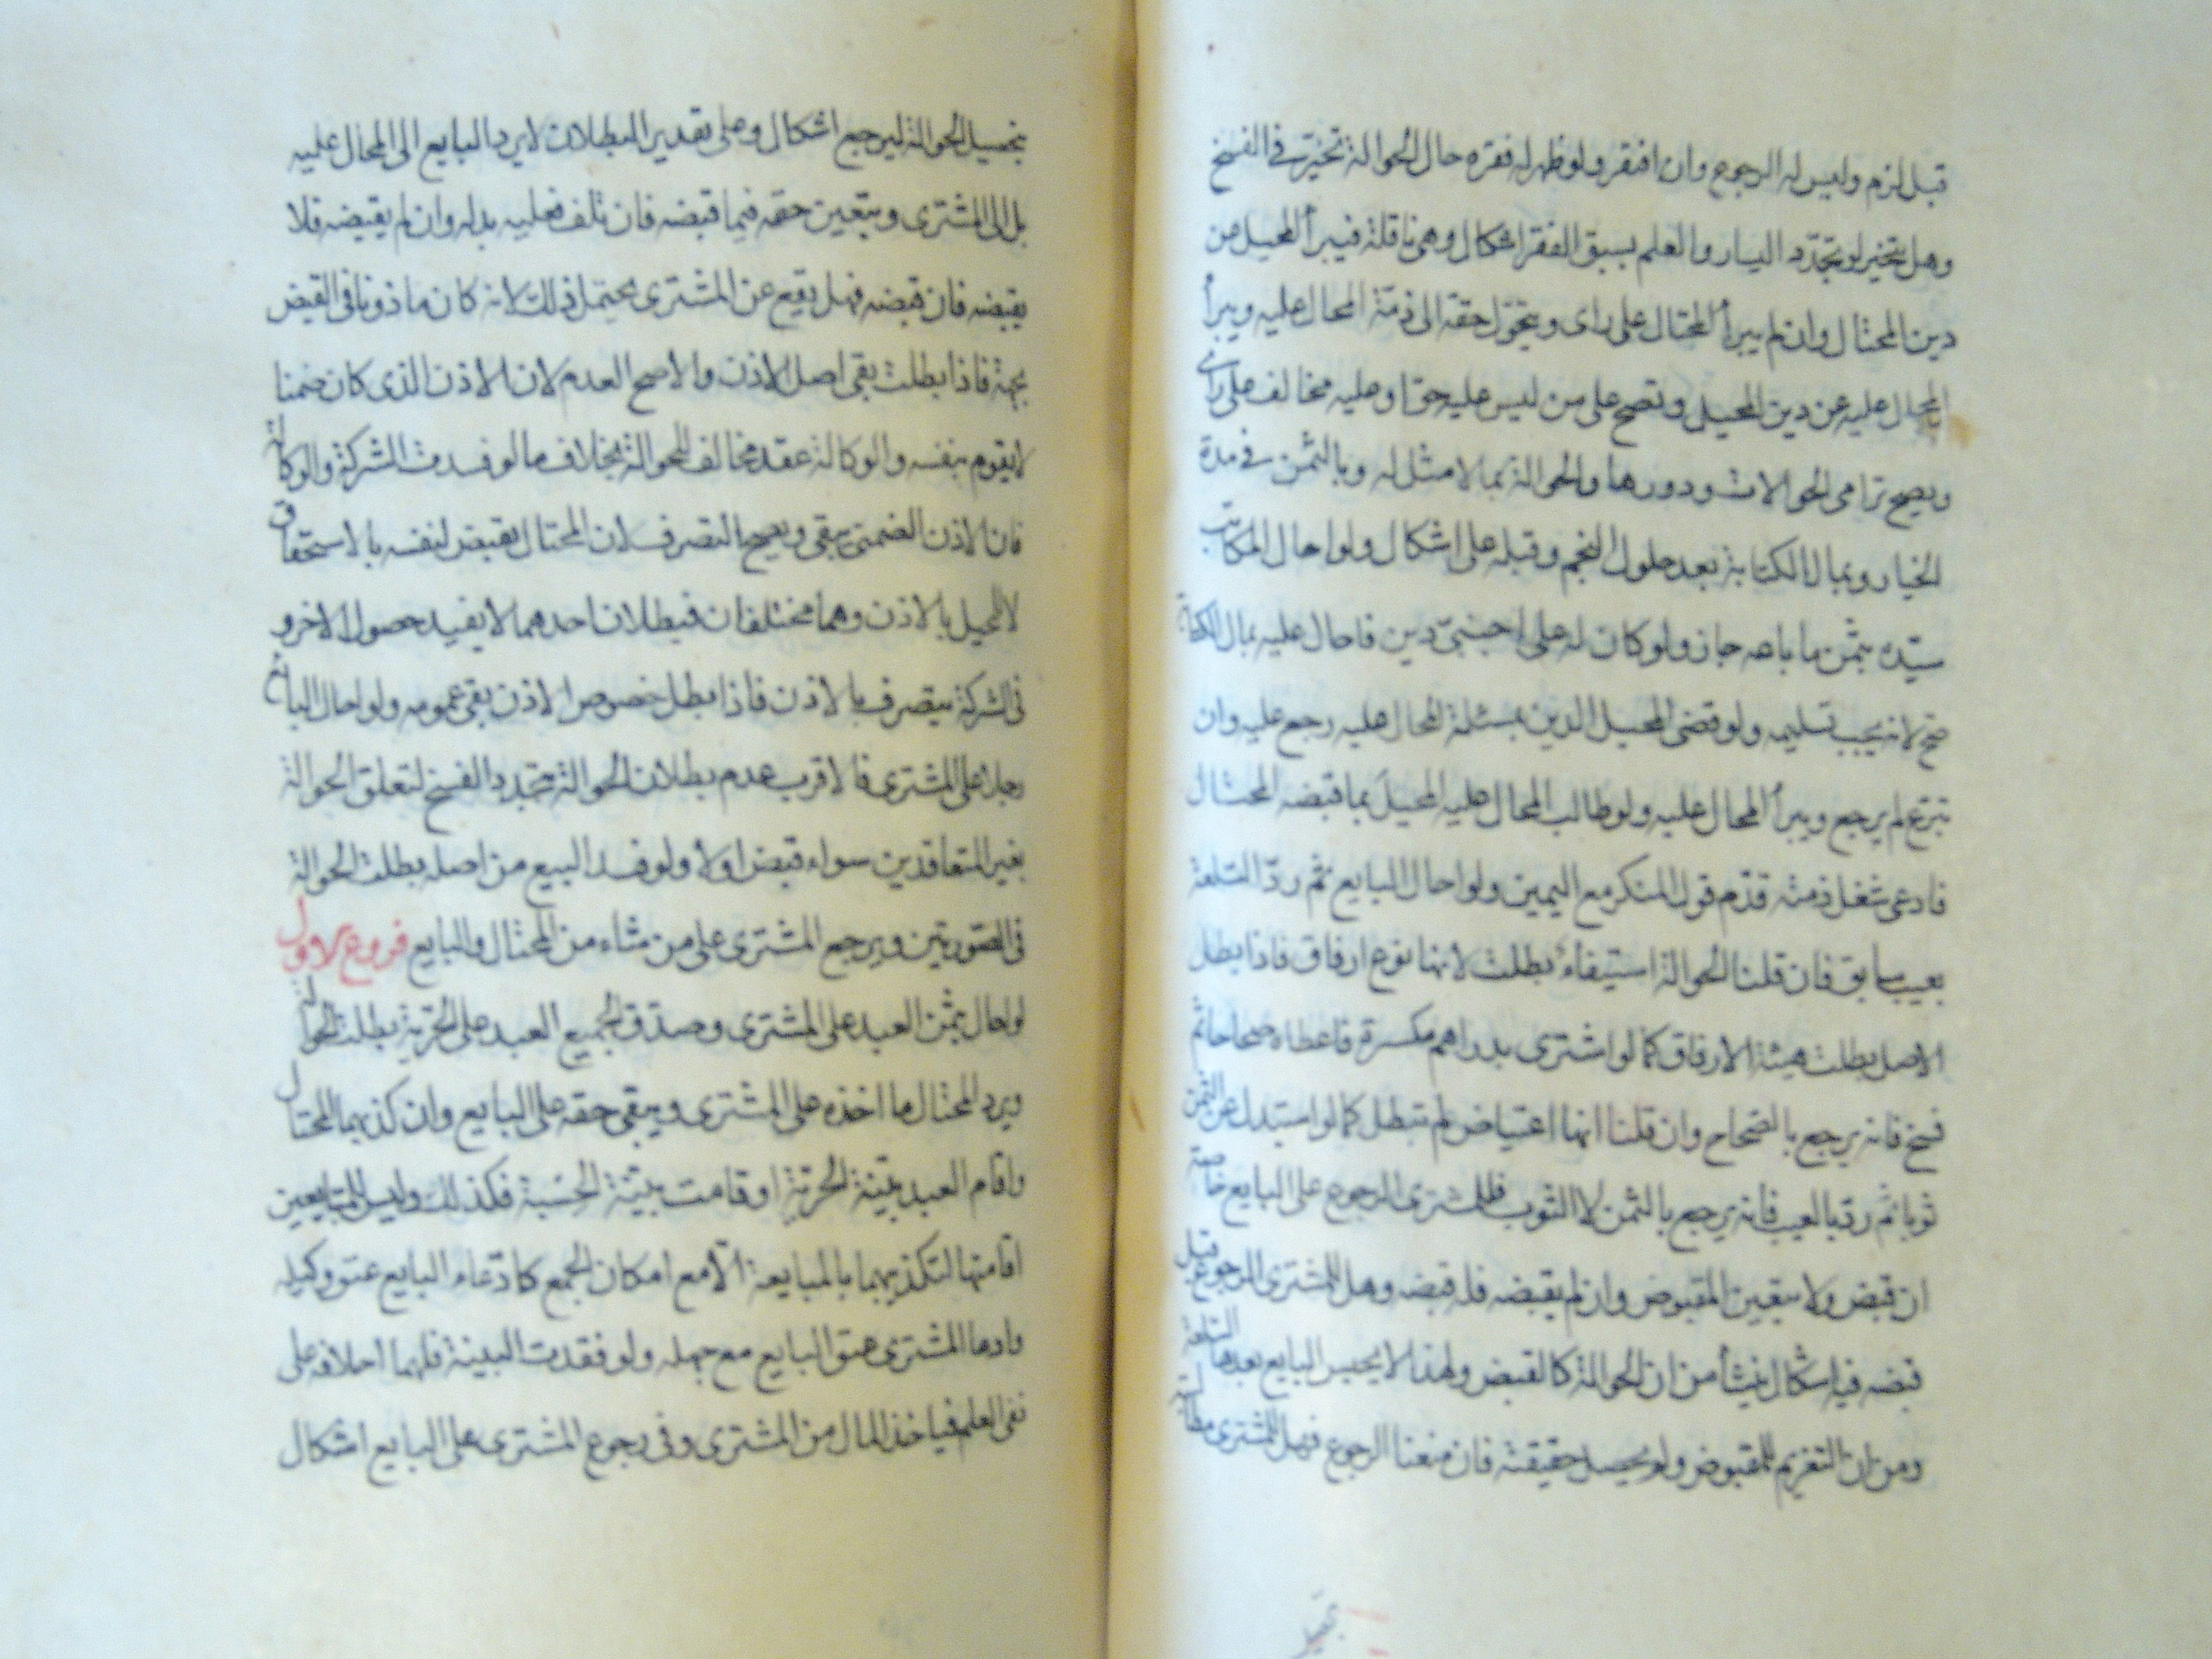 قبل لزم وليس له الرجوع وان افتقر ولو ظهر له فقره حال الحوالة تخير في الفسخ
وهل يتخير لو تجدد اليسار والعلم بسبق الفقر اشكال وهي ناقلة فيبرأ المحيل من
دين المحتال وان لم يبرأ المحتال على راى ويتحول حقه الى ذمة المحال عليه ويبرأ
المحال عليه عن دين المحيل وتصح على من ليس عليه حق او عليه مخالف على راى
ويصح ترامى الحوالات ودورها والحوالة بما لا مثل له وبالثمن في مدة
الخيار وبمال الكتابة بعد حلول النجم وقبله على اشكال ولو احال المكاتب
سيّده بثمن ما باعه جاز ولو كان له على اجنبىّ دين فاحال عليه بمال الكتابة
صح لانه يجب تسليمه ولو قضى المحيل الدين بمسئلة المحال عليه رجع عليه وان
تبرع لم يرجع ويبرأ المحال عليه ولو طالب المحال عليه المحيل بما قبضه المحتال
فادعى شغل ذمته قدّم قول المنكر مع اليمين ولو احال البايع ثم ردّ السلعة
بعيب سابق فان قلنا الحوالة استيفاء بطلت لانها نوع ارفاق فاذا بطل
الاصل بطلت هيئة الارفاق كما لو اشترى بدراهم مكسرة فاعطاه صحاحا ثم
فسخ فانه يرجع بالصحاح وان قلنا انها اعتياض لم تبطل كما لو استبدل عن الثمن
ثوبا ثم ردّ بالعيب فانه يرجع بالثمن لا الثوب فللمشترى الرجوع على البايع خاصة
ان قبض ولا يتعين المقبوض وان لم يقبضه فله قبضه وهل للمشترى الرجوع قبل
قبضه فيه اشكال ينشأ من ان الحوالة كالقبض ولهذا لا يحبس البايع بعدها السلعة
ومن ان التغريم للمقبوض ولم يحصل حقيقته فان منعنا الرجوع فهل للمشترى مطالبته
بتحصيل الحوالة ليرجع اشكال وعلى تقدير البطلان لا يرد البايع الى المحال عليه
بل الى المشترى ويتعين حقه فيما قبضه فان تلف فعليه بدله وان لم يقبضه فلا
يقبضه فان قبضه فهل يقع عن المشترى يحتمل ذلك لانه كان ماذونا في القبض
بجهة فاذا بطلت بقى اصل الاذن والاصح العدم لان الاذن الذى كان ضمنا
لا يقوم بنفسه والوكالة عقد مخالف للحوالة بخلاف ما لو فسدت الشركة والوكالة
فان الاذن الضمنى يبقى ويصح التصرف لان المحتال يقبض لنفسه بالاستحقاق
لا للمحيل بالاذن وهما مختلفان فبطلان احدهما لا يفيد حصول الاخر و
فى الشركة يتصرف بالاذن فاذا بطل خصوص الاذن بقى عمومه ولو احال البايع
رجلا على المشترى فالاقرب عدم بطلان الحوالة بتجدد الفسخ لتعلق الحوالة
بغير المتعاقدين سواء قبض اولا ولو فسد البيع من اصله بطلت الحوالة
فى الصورتين ويرجع المشترى على من شاء من المحتال والبايع فروع الاول
لو احال بثمن العبد على المشترى وصدّق الجميع العبد على الحرّية بطلت الحوالة
ويرد المحتال ما اخذه على المشترى ويبقى حقه على البايع وان كذبهما المحتال
واقام العبد بيّنة الحرّية او قامت بيّنة الحسبة فكذلك وليس للمتبايعين
اقامتها لتكذيبهما بالمبايعة الّا مع امكان الجمع كادّعاء البايع عتق وكيله
وادعا المشترى عتق البايع مع جهله ولو فقدت البينة فلهما احلافه على
نفى العلم فياخذ المال من المشترى وفى رجوع المشترى على البايع اشكال